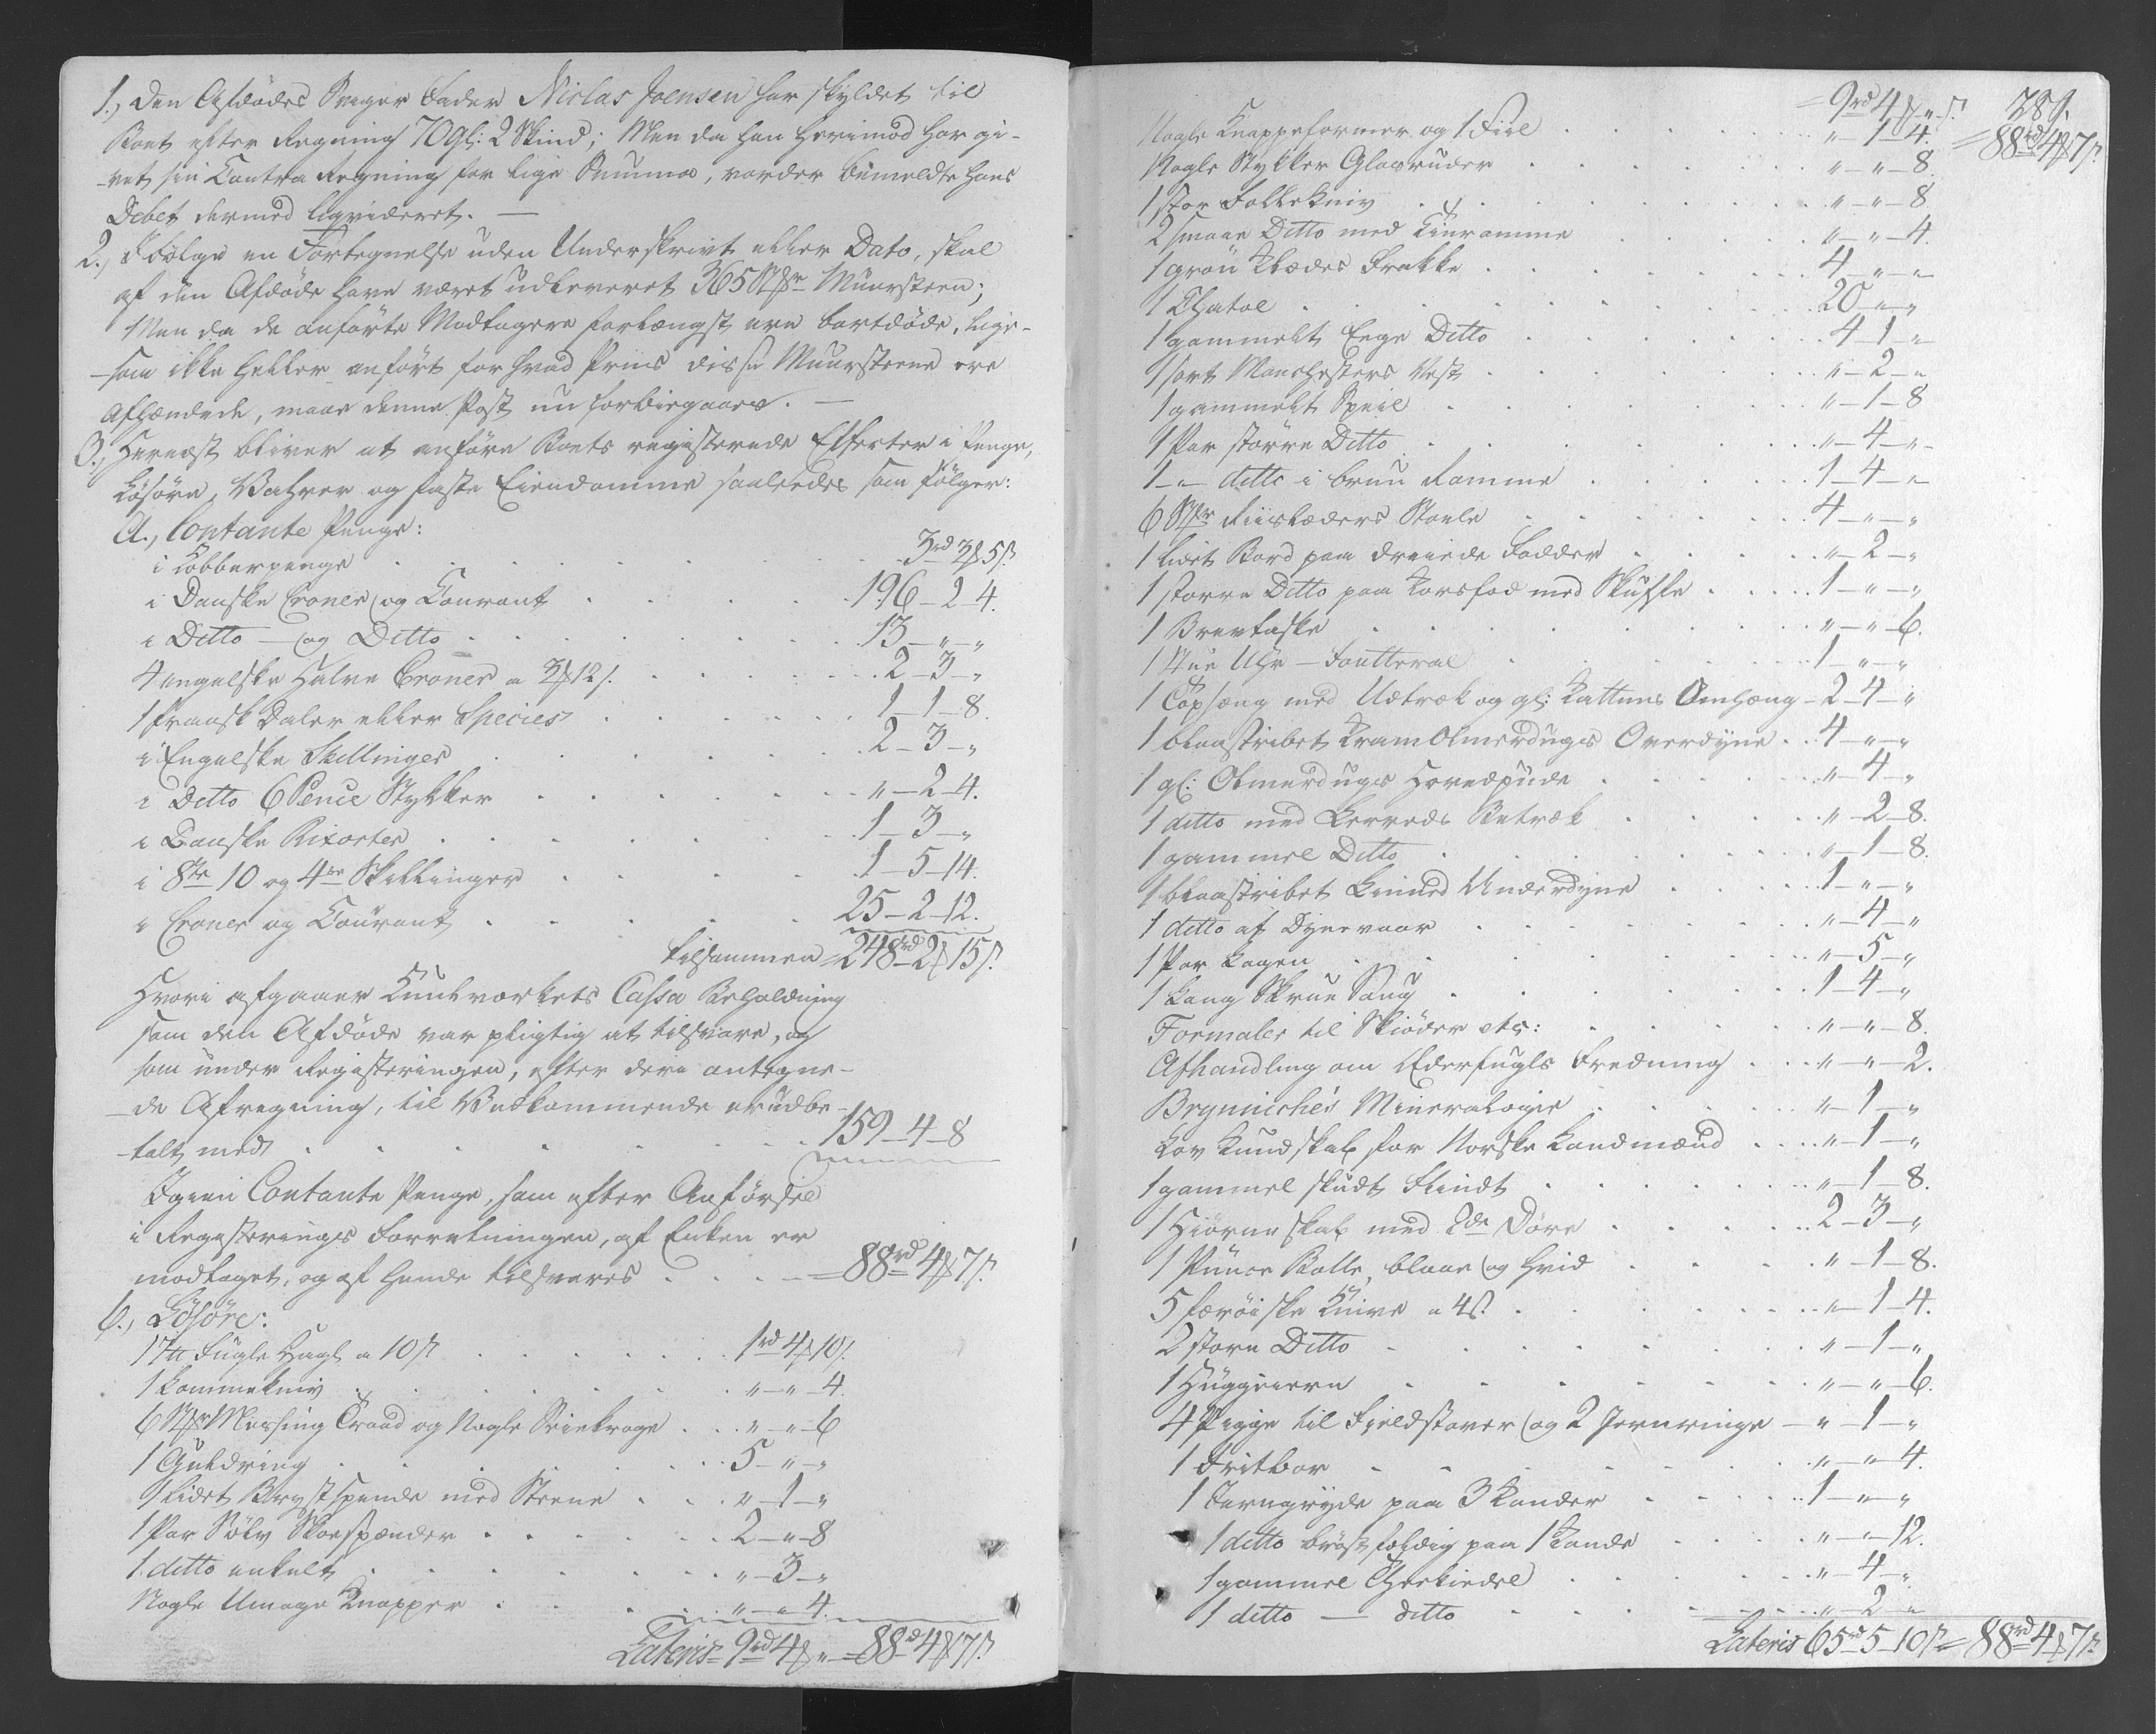 1., Den Afdødes Sviger Fader Niclas Joensen har skyldet til
Boet efter Regning 70 gl: 2 Skind; Men da han herimod har gi-
-vet sin Contra Regning for lige Summa, vorder bemeldte hans
Debet dermed liqvideret. —
2., Ifølge en Fortegnelse uden Underskrivt eller Dato, skal
af den Afdøde have været udleveret 365 Stkr Muursteen;
Men da de anførte Modtagere forlængst ere bortdøde, lige-
-som ikke heller anført for hvad Priis disse Muursteene ere
Afhændede, maae denne Post nu forbiegaaes. —
3., Hernæst bliver at anføre Boets registerede Effecter i Penge,
Løsøre, Vahrer og faste Eiendomme saaledes som følger:
A., Contante Penge:
i Kobberpenge . . . 3rd 3 ₰ 5 s.
i Danske Croner og Courant . . . 196 - 2 - 4.
i Ditto — og Ditto . . . 13 - „ - „
4 engelske Halve Croner a 3 ₰ 12 s. . . . 2 - 3 - „
1 fransk Daler eller Species . . . 1 - 1 - 8.
i Engelske Skillinger . . . 2 - 3 - „
i Ditto 6 Pence Stykker . . . „ - 2 - 4.
i Danske Rixorter . . . 1 - 3 - „
i 8te 10 og 4re Skillinger . . . 1 - 5 - 14.
i Croner og Courant . . . 25 - 2 - 12.
tilsammen = 248rd 2 ₰ 15 s.
Hvori afgaaer Kuulværkets Cassa Beholdning
som den Afdøde var pligtig at tilsvare, og
som under Registeringen, efter deri antegne-
-de Afregning, til Vedkommende er udbe-
-talt med . . . 159 - 4 - 8
Igien Contante Penge, som efter Anførsel
i Registerings Forretningen, af Enken er
modtaget, og af hende tilsvares . . . = 88rd 4 ₰ 7 s.
b., Løsøre:
17 ℔ Fugle Hagl a 10 s. . . . 1rd 4 ₰ 10 s.
1 Lommekniv . . . „ - „ - 4.
6 Stkr Messing Traad og Nogle Kroge . . . „ - „ - 6
1 Guldring . . . 5 - „ - „
1 lidet Brystspende med Steene . . . „ - 1 - „
1 Par Sølv Skoespænder . . . 2 - „ - 8
1 ditto enkelt . . . „ - 3 - „
Nogle Umage Knapper . . . „ - „ - 4.
Lateris = 9rd 4 ₰ „ = 88rd 4 ₰ 7 s.
= 9rd 4 ₰ „ s. 28 s.
= 88rd 4 ₰ 7 s.
Nogle Knappeformer og 1 Fiil . . . „ - 1 - 4.
Nogle Stykker Glasruder . . . „ - „ - 8.
1 stor Follekniv . . . „ - „ - 8
2 smaae Ditto med . . . „ - „ - 4.
1 grøn Klædes Frakke . . . 4 - „ - „
1 Chatol . . . 20 - „ - „
1 gammelt Eege Ditto . . . 4 - 1 - „
1 sort Manchesters Vest . . . „ - 2 - „
1 gammelt Speil . . . „ - 1 - 8
1 Par større Ditto . . . „ - 4 - „
1 - „ - ditto i bruun Ramme . . . 1 - 4 - „
6 Stkr Riislæders Stoele . . . 4 - „ - „
1 lidet Bord paa dreiede Fødder . . . „ - 2 - „
1 større Ditto paa Korsfod med Skuffe . . . 1 - „ - „
1 Brevtaske . . . „ - „ - 6.
1 Stue Uhr - Foutteral . . . 1 - „ - „
1 Topseng med Udtræk og gl: Kattuns Omhæng - 2 - 4 - „
1 blaastribet KramOlmerdugs Overdyne . . 4 - „ - „
1 gl: Olmerdugs Hovedpude . . . „ - 4 - „
1 ditto med Lerreds Betræk . . . „ - 2 - 8.
1 gammel Ditto . . . „ - 1 - 8.
1 blaastribet Linned Underdyne . . . 1 - „ - „
1 ditto af Dynevaar . . . „ - 4 - „
1 Par Lagen . . . „ - 5 - „
1 Lang Skrue Tang . . . 1 - 4 - „
Formaler til Skiøder etc: . . . „ - „ - 8.
Afhandling om Ederfugls Fredning . . . „ - „ - 2.
Brynniche's Mineralogie . . . „ - 1 - „
Lov Kundskab for Norske Landmænd . . . „ - 1 - „
1 gammel skudt Flindt . . . „ - 1 - 8.
1 Hiørneskab med 2de Døre . . . 2 - 3 - „
1 Punce Bolle, blaae og hvid . . . „ - 1 - 8.
5 færøiske Knive a 4 s. . . . „ - 1 - 4.
2 store Ditto . . . „ - 1 - „
1 Huggeiern . . . „ - „ - 6.
4 Pigge til Fieldstaver og 2 Jernringe - „ - 1 - „
1 Fritbor . . . „ - „ - 4.
1 Jerngryde paa 3 Kander . . . 1 - „ - „
1 ditto brøstfældig paa 1 Kande . . . „ - „ - 12.
1 gammel Theekiedel . . . „ - 4 - „
1 ditto — ditto . . . „ - 2 - „
Lateris 65rd 5 - 10 s. = 88rd 4 ₰ 7 s.